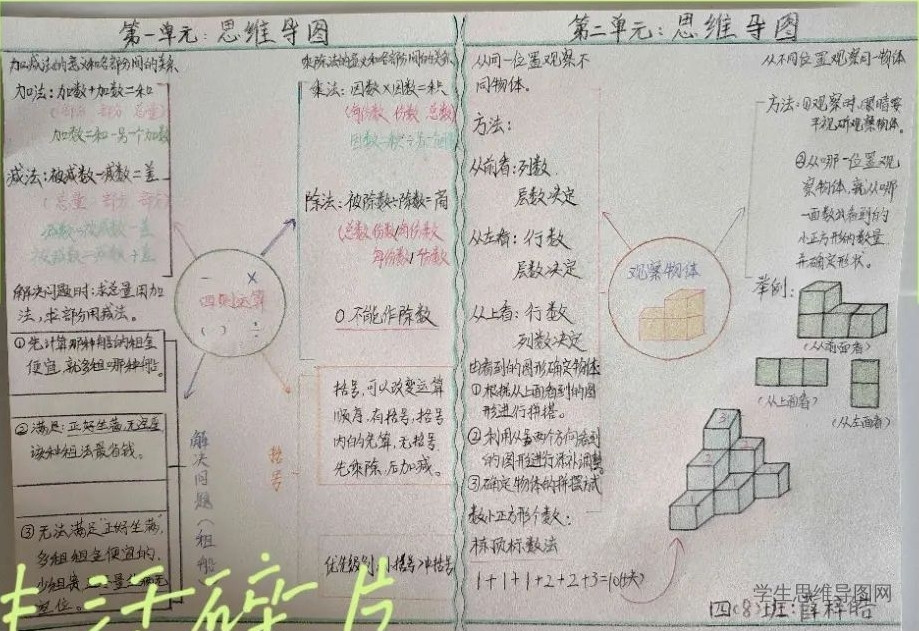 第一单元：思维导图
加减法的意义和各部分间的关系
加法：加数+加数=和
(部分 部分 总量)
加数=和-另一个加数
减法：被减数-减数=差
(总量 部分 部分)
减数=被减数-差
被减数=减数+差
解决问题时：求总量用加
法，求部分用减法。
①先计算哪种船的租金
便宜，就多租哪种船。
②满足：正好坐满，无空座
该种租法最省钱。
③无法满足"正好坐满"，
多租租金便宜的，
少租贵
空位。
解决问题（租船）
四则运算
－ ×
( ) ÷
括号
乘除法的意义和各部分间的关系
乘法：因数×因数=积
(每份数 份数 总数)
因数=积÷另一个因数
除法：被除数÷除数=商
(总数 份数/每份数
每份数/份数)
0不能作除数
括号，可以改变运算
顺序，有括号，括号
内的先算，无括号，
先乘除，后加减。
优先级别：小括号>中括号
第二单元：思维导图
从同一位置观察不
同物体。
方法：
从前看：列数
层数决定
从左看：行数
层数决定
从上看：行数
列数决定
由看到的图形确定物体
①根据从上面看到的图
形进行拼搭。
②利用从另两个方向看到
的图形进行添补调整。
③确定物体的拼摆方式
数小正方形个数：
标顶标数法
1+1+1+2+2+3=10(块)
观察物体
从不同位置观察同一物体
方法：①观察时，眼睛要
平视所观察物体。
②从哪一位置观
察物体，就从哪
一面数出看到的
小正方形的数量
并确定形状。
举例：
(从前面看)
(从上面看)
(从左面看)
3
学生思维导图网
四(8)班：薛梓皓
生活碎片